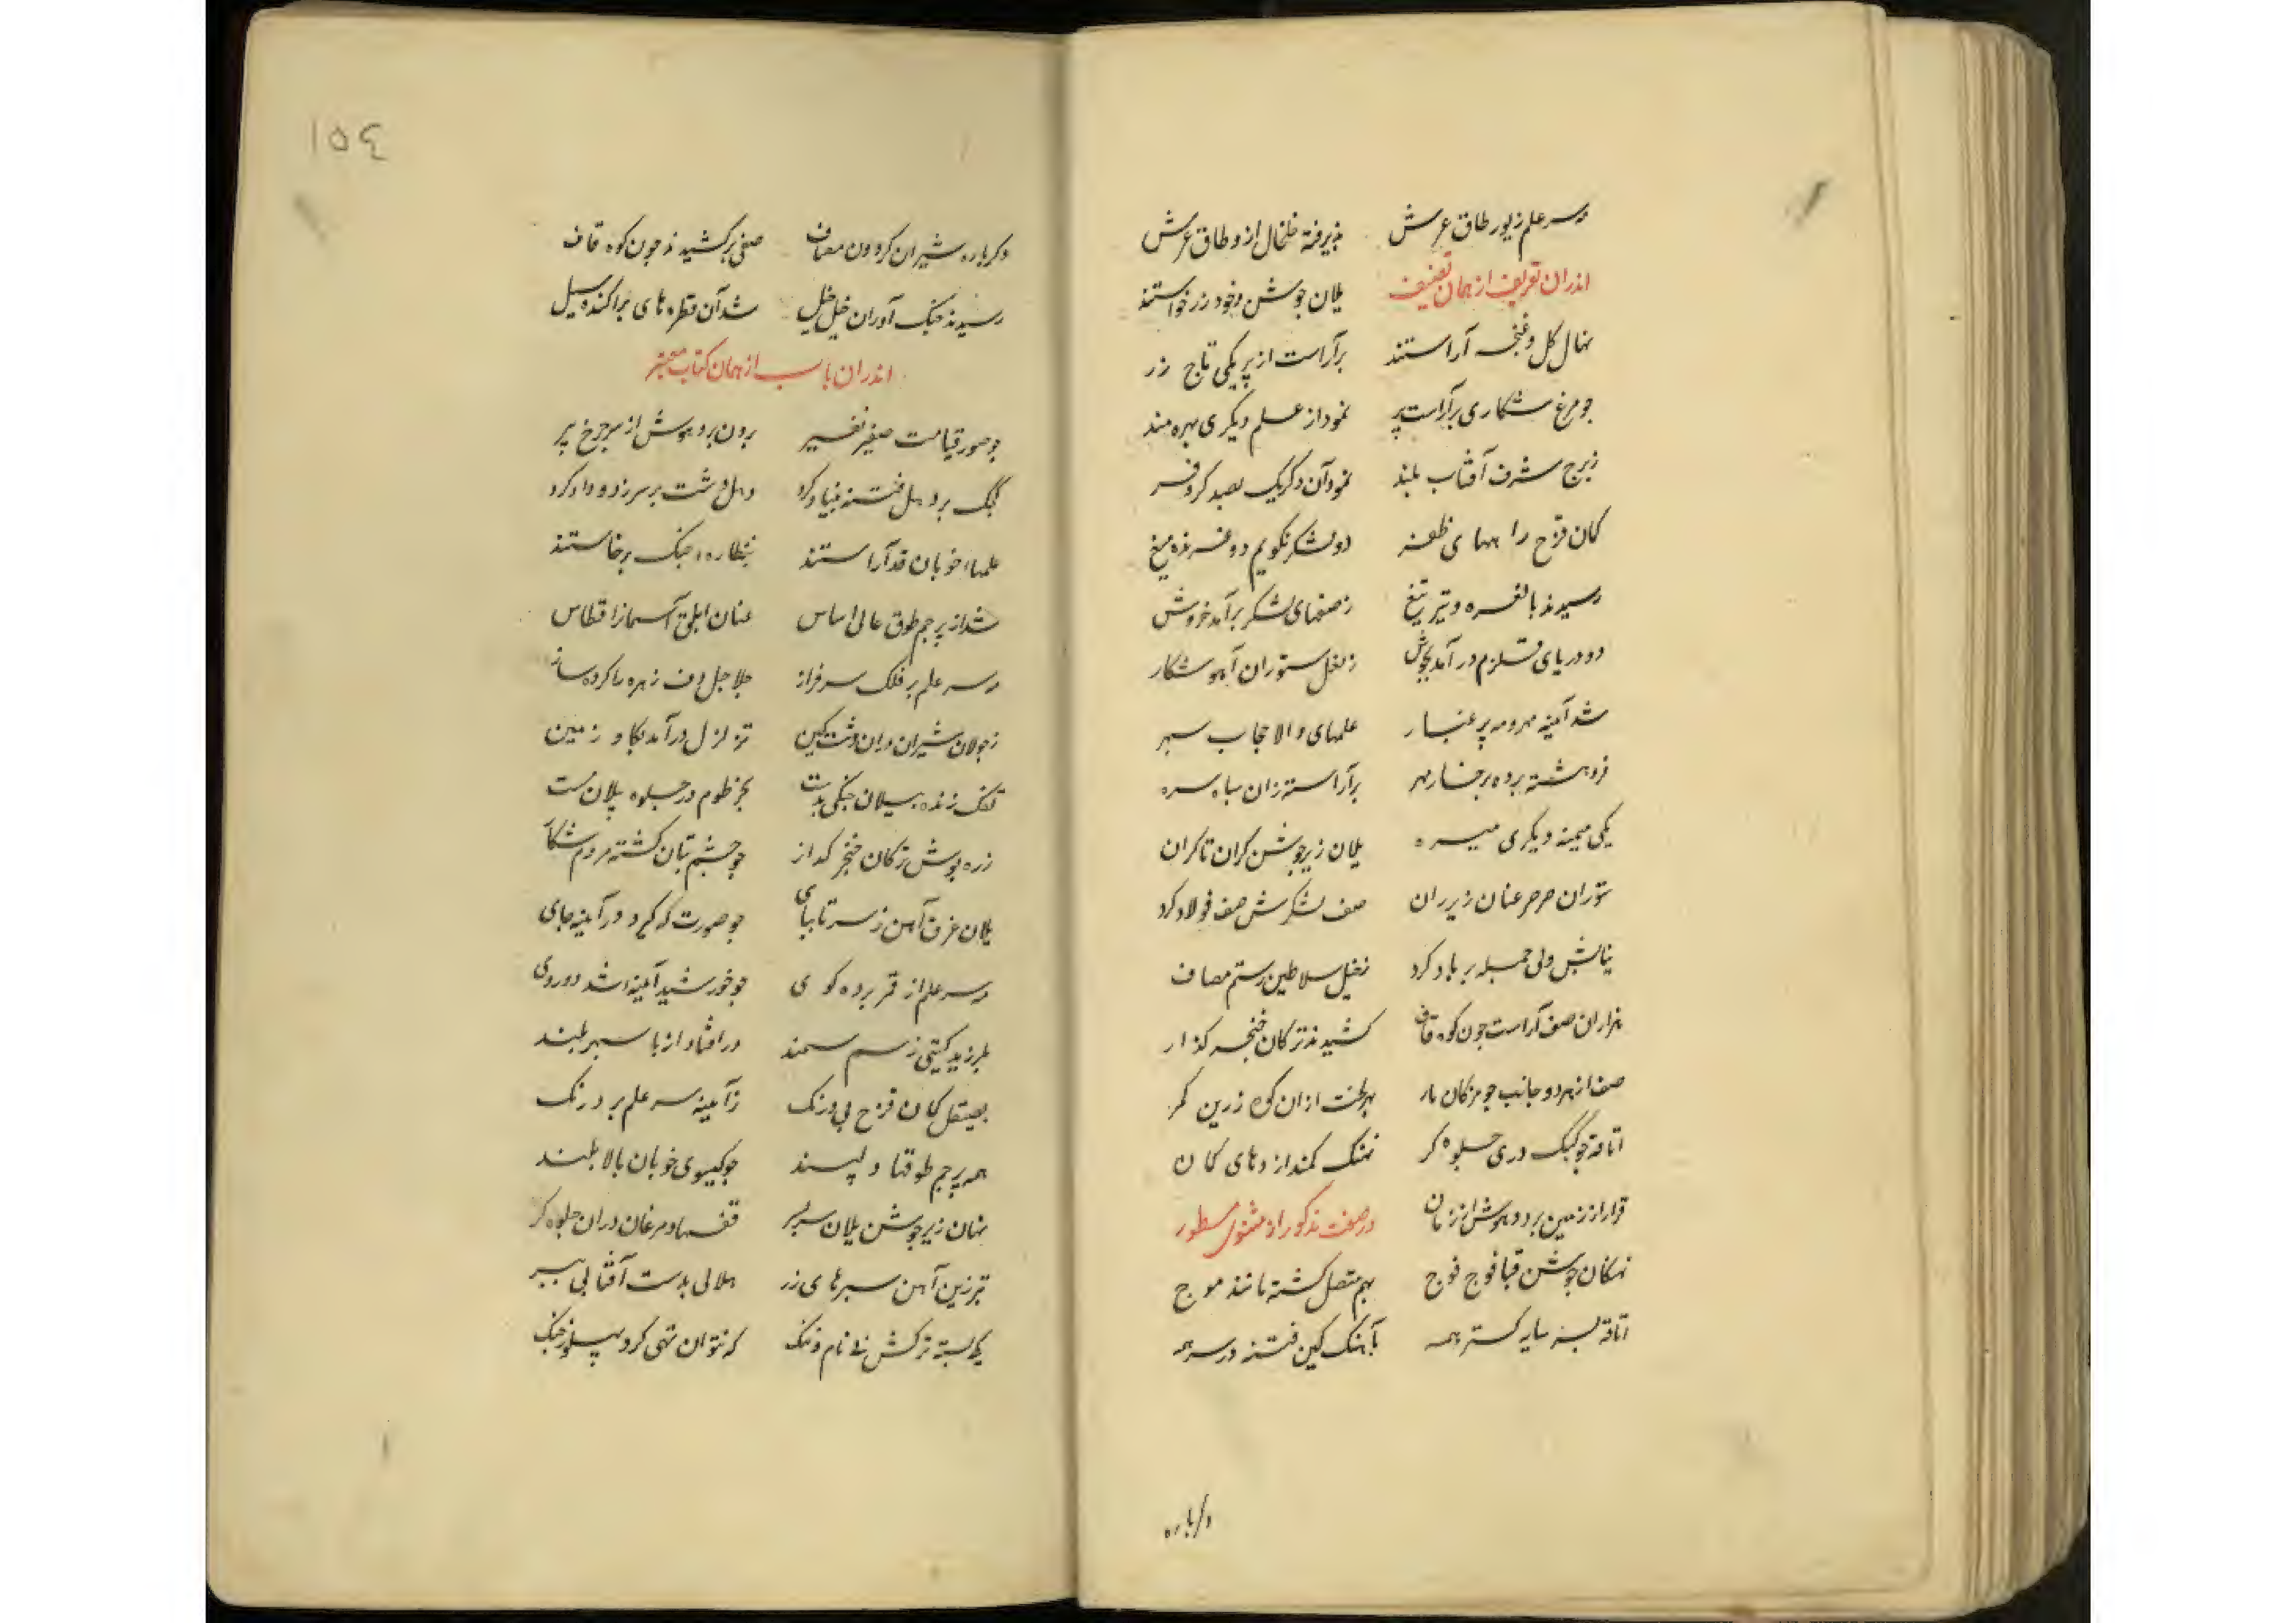 مه سر علم زیور طاق عرش پذیرفته خلخال ازو طاق عرش
اندران تعریف از همان تصنیف یلان جوشن و خود زر خواستند
نهال گل و غنچه آراستند برآراست از پر یکی تاج زر
چو مرغ شکاری برآراست پر نمود از علم دیگری بهره مند
ز برج شرف آفتاب بلند نمود آن دگر یک بصد کر و فر
کمان قزح را بهای ظفر دو لشکر نگویم دو غرنده میغ
رسیدند با نعره و تیر و تیغ ز صفهای لشکر برآمد خروش
دو دریای قلزم درآمد بجوش ز نعل ستوران آهو شکار
شد آیینه مهر و مه پر غبار علمهای والا حجاب سپهر
فروهشته پرده برخسار مهر برآراسته زان سپاه سره
یکی میمنه دیگری میسره یلان زیر جوشن کران تا کران
ستوران صرصر عنان زیر ران صف لشکرش صف فولاد کرد
بنایش ولی جمله بر باد کرد ز خیل سلاطین رستم مصاف
هزاران صف آراست چون کوه قاف کشیدند ترکان خنجر گذار
صف از هر دو جانب چو مژگان یار بهر لخت از آن کوه زرین کمر
اتاقه چو کبک دری جلوه گر نهنگ کمند اژدهای کمان
قرار از زمین برد و هوش از زمان در صفت مذکور از مثنوی مسطور
نهنگان جوشن قبا فوج فوج بهم متصل گشته مانند موج
اتاقه بسر سایه گستر همه بآهنگ کین فتنه در سر همه
دگرباره
۱۵٤
دگرباره شیران گردون مصاف صفی برکشیدند چون کوه قاف
رسیدند جنگ آوران خیل خیل شد آن قطره های پراکنده سیل
اندران باب از همان کتاب معتبر
چو صور قیامت صفیر نفیر برون برد هوش از سر چرخ پیر
کجک بر دهل فتنه بنیاد کرد دهل دست بر سر زد و داد کرد
علمها چو خوبان قد آراستند بنظاره جنگ برخاستند
شد از پرچم طوق عالی اساس عنان ابلق آسمانرا قطاس
مه سر علم بر فلک سرفراز جلاجل دف زهره را کرده ساز
ز جولان شیران دران دشت کین تزلزل درآمد بگاو زمین
کجک زنده پیلان جنگی بدست بخرطوم در جلوه پیلان مست
زره پوش ترکان خنجر گداز چو چشم بتان گشته مردم شکار
یلان غرق آهن ز سر تا بپای چو صورت که گیرد در آیینه جای
مه سر علم از قمر برده گوی چو خورشید آیینه شد دوروی
بلرزید گیتی ز سم سمند در افتاد از پا سپهر بلند
بصیقل کمان قزح بی درنگ ز آیینه سر علم برد زنگ
همه پرچم طوقها دلپسند چو گیسوی خوبان بالا بلند
نهان زیر جوشن یلان سربسر قفسها و مرغان دران جلوه گر
تبرزین آهن سپرهای زر هلالی بدست آفتابی بسر
یکی بسته ترکش پی نام و ننگ که نتوان تهی کرد پهلو ز جنگ